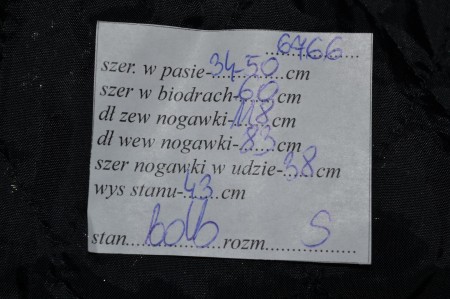 6466
szer. w pasie-34-50cm
szer w biodrach-60cm
dł zew nogawki-118cm
dł wew nogawki-83cm
szer nogawki w udzie-38cm
wys stanu-43cm
stan bdb rozm S